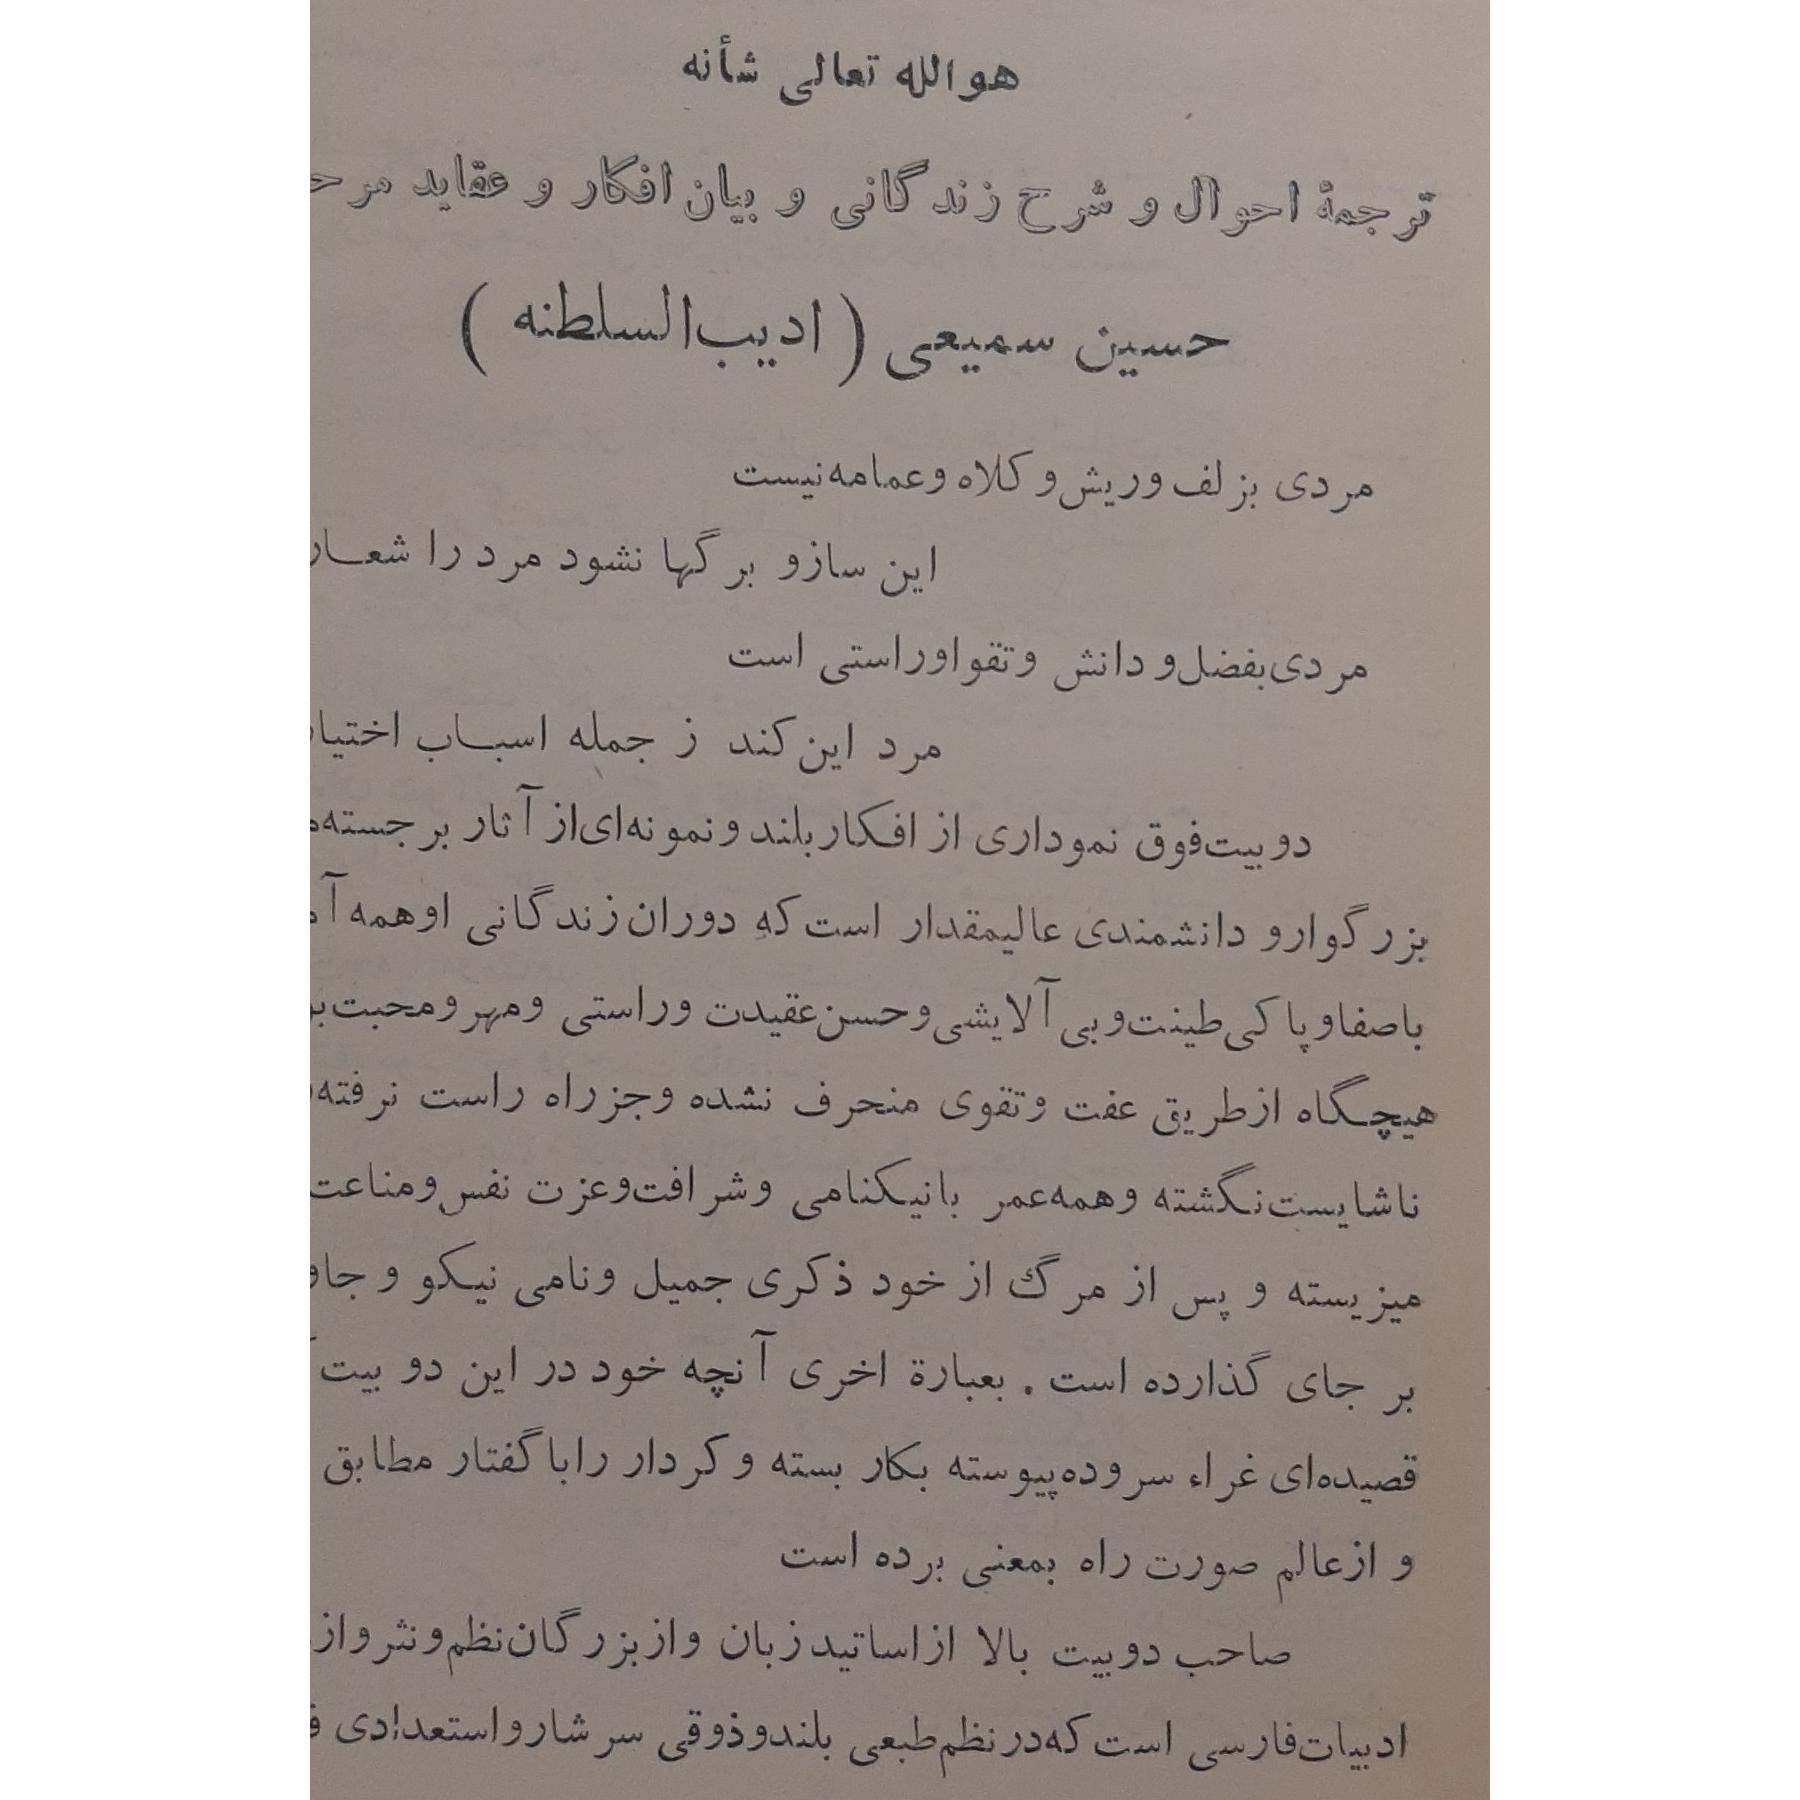 هوالله تعالی شأنه
ترجمهٔ احوال و شرح زندگانی و بیان افکار و عقاید
حسین سمیعی ( ادیب‌السلطنه )
مردی بزلف وریش و کلاه وعمامه نیست
این سازو برگها نشود مرد را شعــار
مردی بفضل و دانش وتقواوراستی است
مرد این کند ز جمله اسبــاب
دوبیت فوق نموداری از افکار بلند ونمونه‌ای از آثار
بزرگوارو دانشمندی عالیمقدار است که دوران زندگانی اوهمه
باصفاوپاکی طینت وبی آلایشی وحسن عقیدت وراستی ومهر ومحبت
هیچگاه ازطریق عفت وتقوی منحرف نشده وجزراه راست نرفته
ناشایست نگشته وهمه عمر بانیکنامی وشرافت وعزت نفس ومناعت
میزیسته و پس از مرگ از خود ذکری جمیل ونامی نیکو و
بر جای گذارده است . بعبارة اخری آنچه خود در این دو بیت
قصیده‌ای غراء سروده پیوسته بکار بسته و کردار راباگفتار مطابق
و ازعالم صورت راه بمعنی برده است
صاحب دوبیت بالا ازاساتید زبان وازبزرگان نظم ونثر واز
ادبیات فارسی است که در نظم طبعی بلندوذوقی سرشارواستعدادی